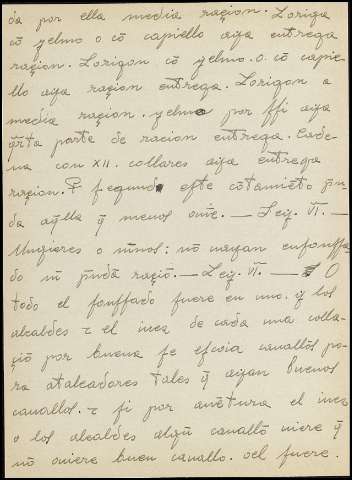 da por ella media raçion. Loriga
cõ yelmo o cõ capiello aya entrega
raçion. Lorigon cõ yelmo. o. cõ capie-
llo aya raçion entrega. Lorigon a
media raçion. yelmo por ssi aya
q̃rta parte de racion entrega. Cade-
na con XII. collares aya entrega
raçion. segund este cõtamiẽto p̃n-
da aq̃lla q̃ menos ouie. — Ley. VI. —
Mugieres o niños: nõ uayan enfonssa-
do ni p̃ndã raçiõ. — Ley. VII. — O
todo el fonssado fuere en uno. q̃ los
alcaldes τ el iuez de cada una colla-
çiõ por buena fe escoia cauallos pa-
ra ataleadores tales q̃ ayan buenos
cauallos. τ si por auẽtura el iuez
o los alcaldes algũ cauallo uiere q̃
nõ ouiere buen cauallo. oel fuere.